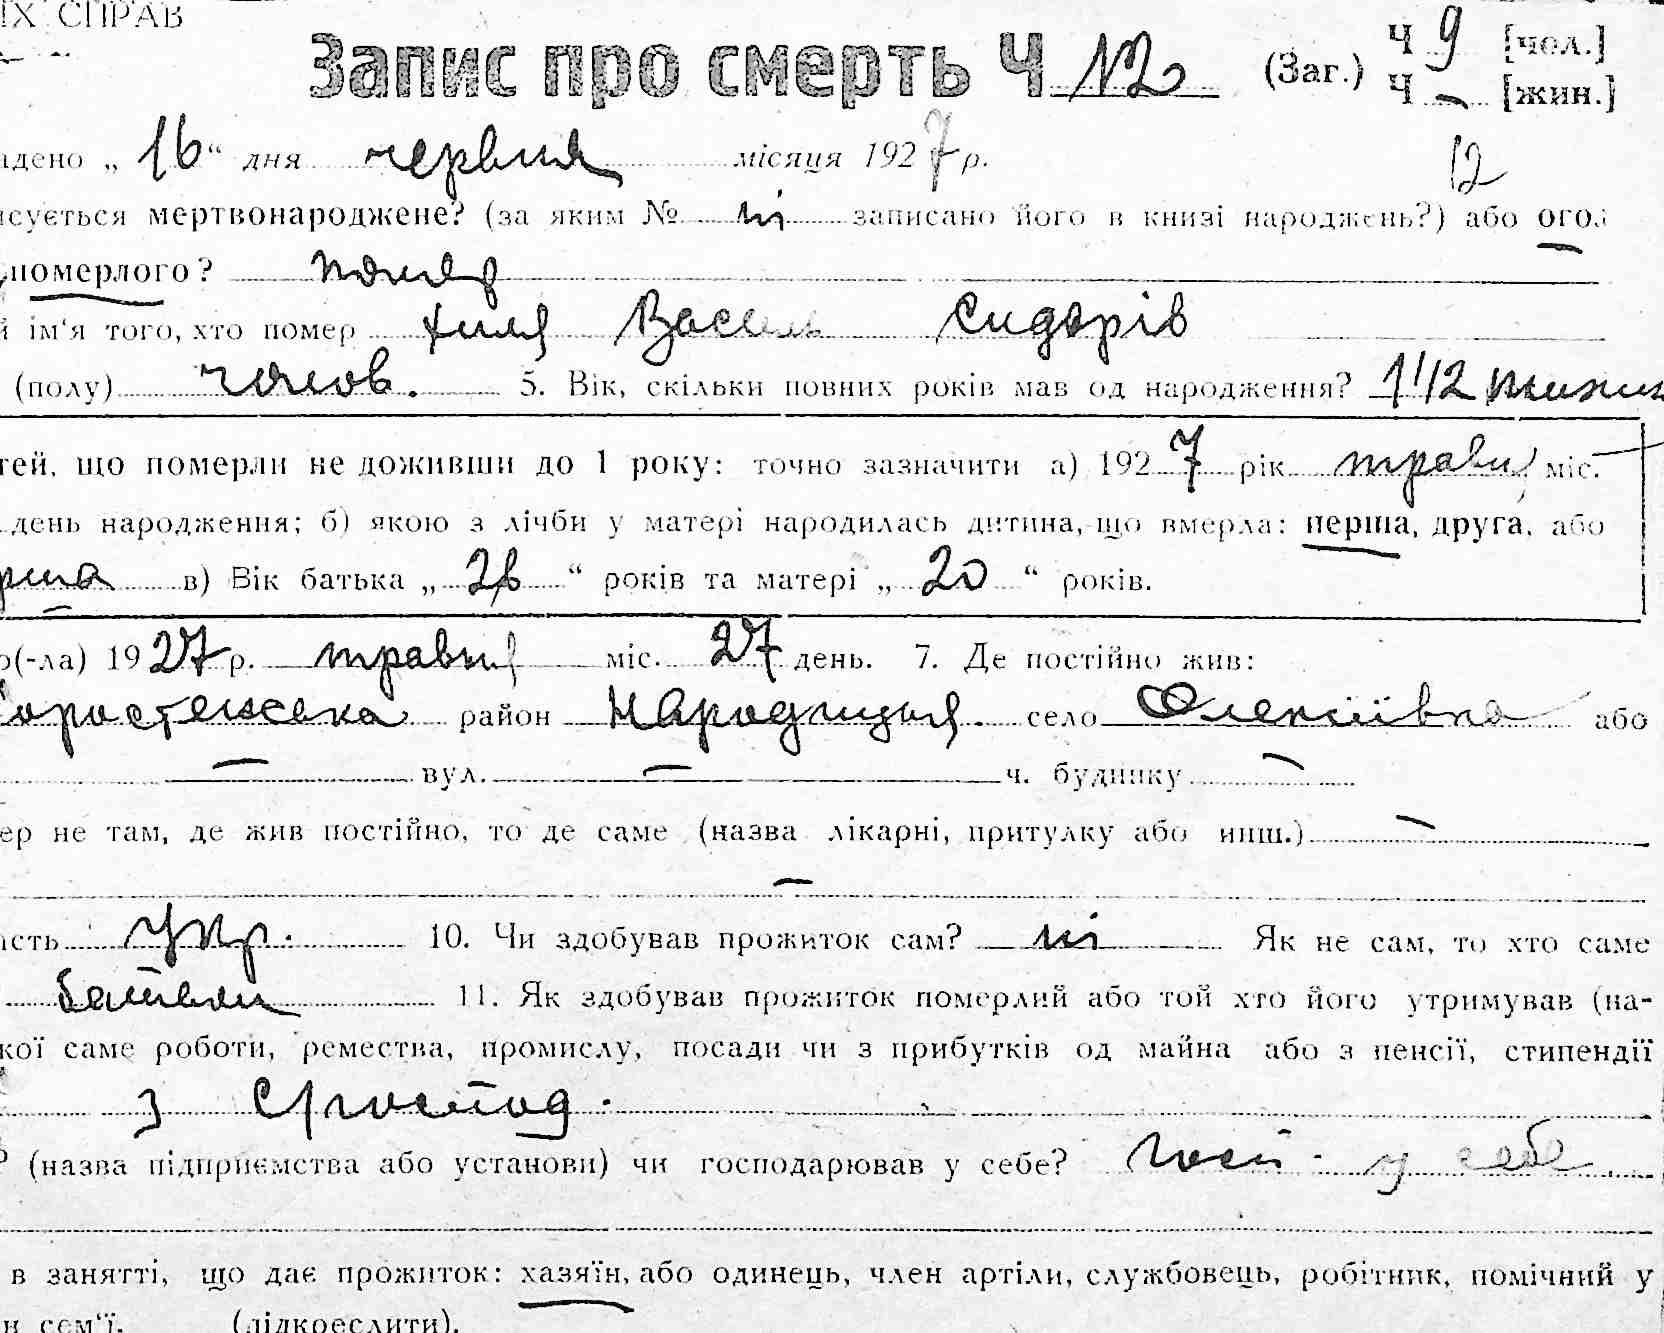 ІХ СПРАВ
Запис про смерть Ч 12 (Заг.) Ч 9 [чол.]
Ч – [жин.]
адено „ 16 “ дня червня місяця 1927 р. 12
исується мертвонароджене? (за яким № ні записано його в книзі народжень?) або огол
померлого? помер
й ім‘я того, хто помер Василь Сидорів
(полу) чолов. 5. Вік, скільки повних років мав од народження? 1 1/2 тижні
тей, що померли не доживши до 1 року: точно зазначити а) 1927 рік травн міс.
день народження; б) якою з лічби у матері народилась дитина, що вмерла: перша, друга, або
рша в) Вік батька „ 26 “ років та матері „ 20 “ років.
р(-ла) 1927 р. травня міс. 27 день. 7. Де постійно жив:
Коростенська район Народицький. село Олексіївка або
– вул. – ч. будинку –
ер не там, де жив постійно, то де саме (назва лікарні, притулку або инш.) –
–
ість укр. 10. Чи здобував прожиток сам? ні Як не сам, то хто саме
батьки 11. Як здобував прожиток померлий або той хто його утримував (на-
кої саме роботи, ремества, промислу, посади чи з прибутків од майна або з пенсії, стипендії
з с/господ.
? (назва підприємства або установи) чи господарював у себе? госп. у себе
в занятті, що дає прожиток: хазяїн, або одинець, член артіли, службовець, робітник, помічний у
и сем‘ї. (підкреслити).